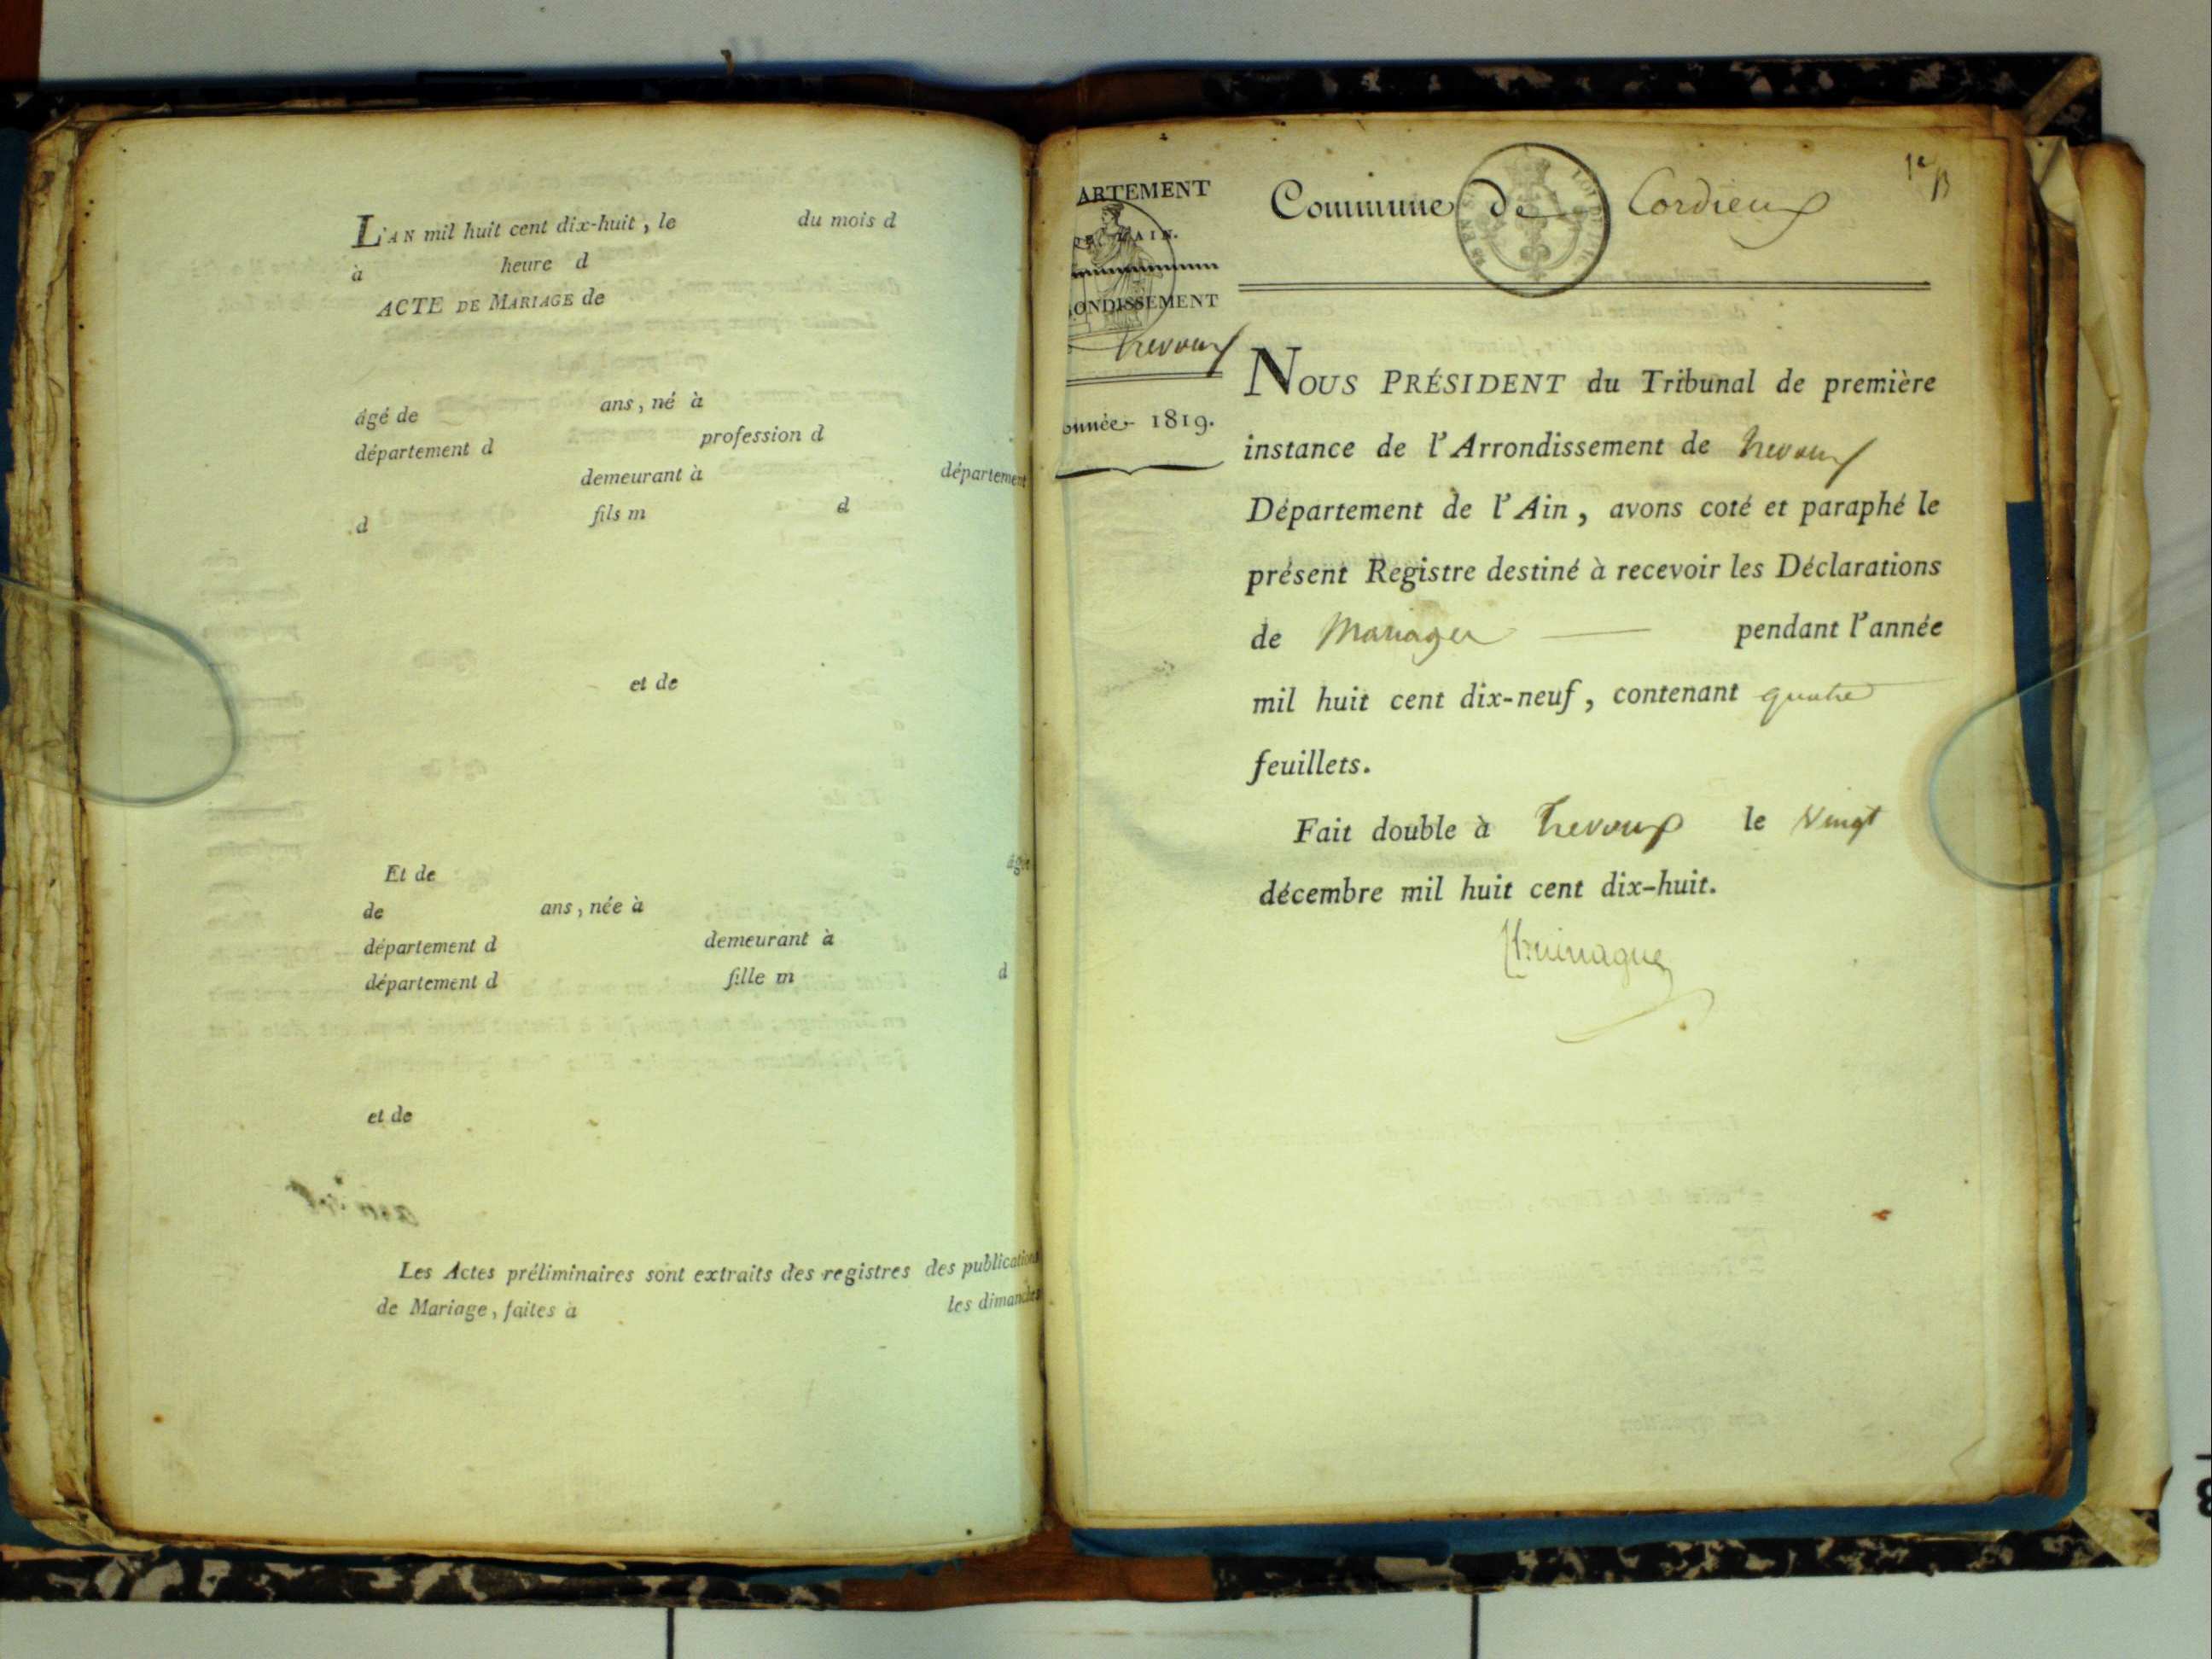 L'AN mil huit cent dix-huit, le du mois d
à heure d
ACTE DE MARIAGE de
âgé de ans, né à
département d profession d
demeurant à département
d fils m d
et de
Et de âgée
de ans, née à
département d demeurant à
département d fille m d
et de
Les Actes préliminaires sont extraits des registres des publications
de Mariage, faites à les dimanches
ARTEMENT
DE L'AIN.
ONDISSEMENT
Trevoux
année 1819.
Commune de Cordieux
1er
NOUS PRÉSIDENT du Tribunal de première
instance de l'Arrondissement de Trevoux
Département de l'Ain, avons coté et paraphé le
présent Registre destiné à recevoir les Déclarations
de Mariages — pendant l'année
mil huit cent dix-neuf, contenant quatre
feuillets.
Fait double à Trevoux le Vingt
décembre mil huit cent dix-huit.